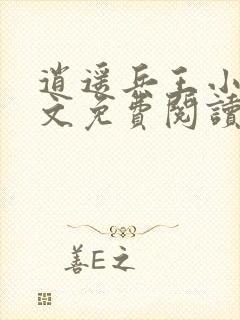 逍遥兵王小
文免费閱讀
善E之